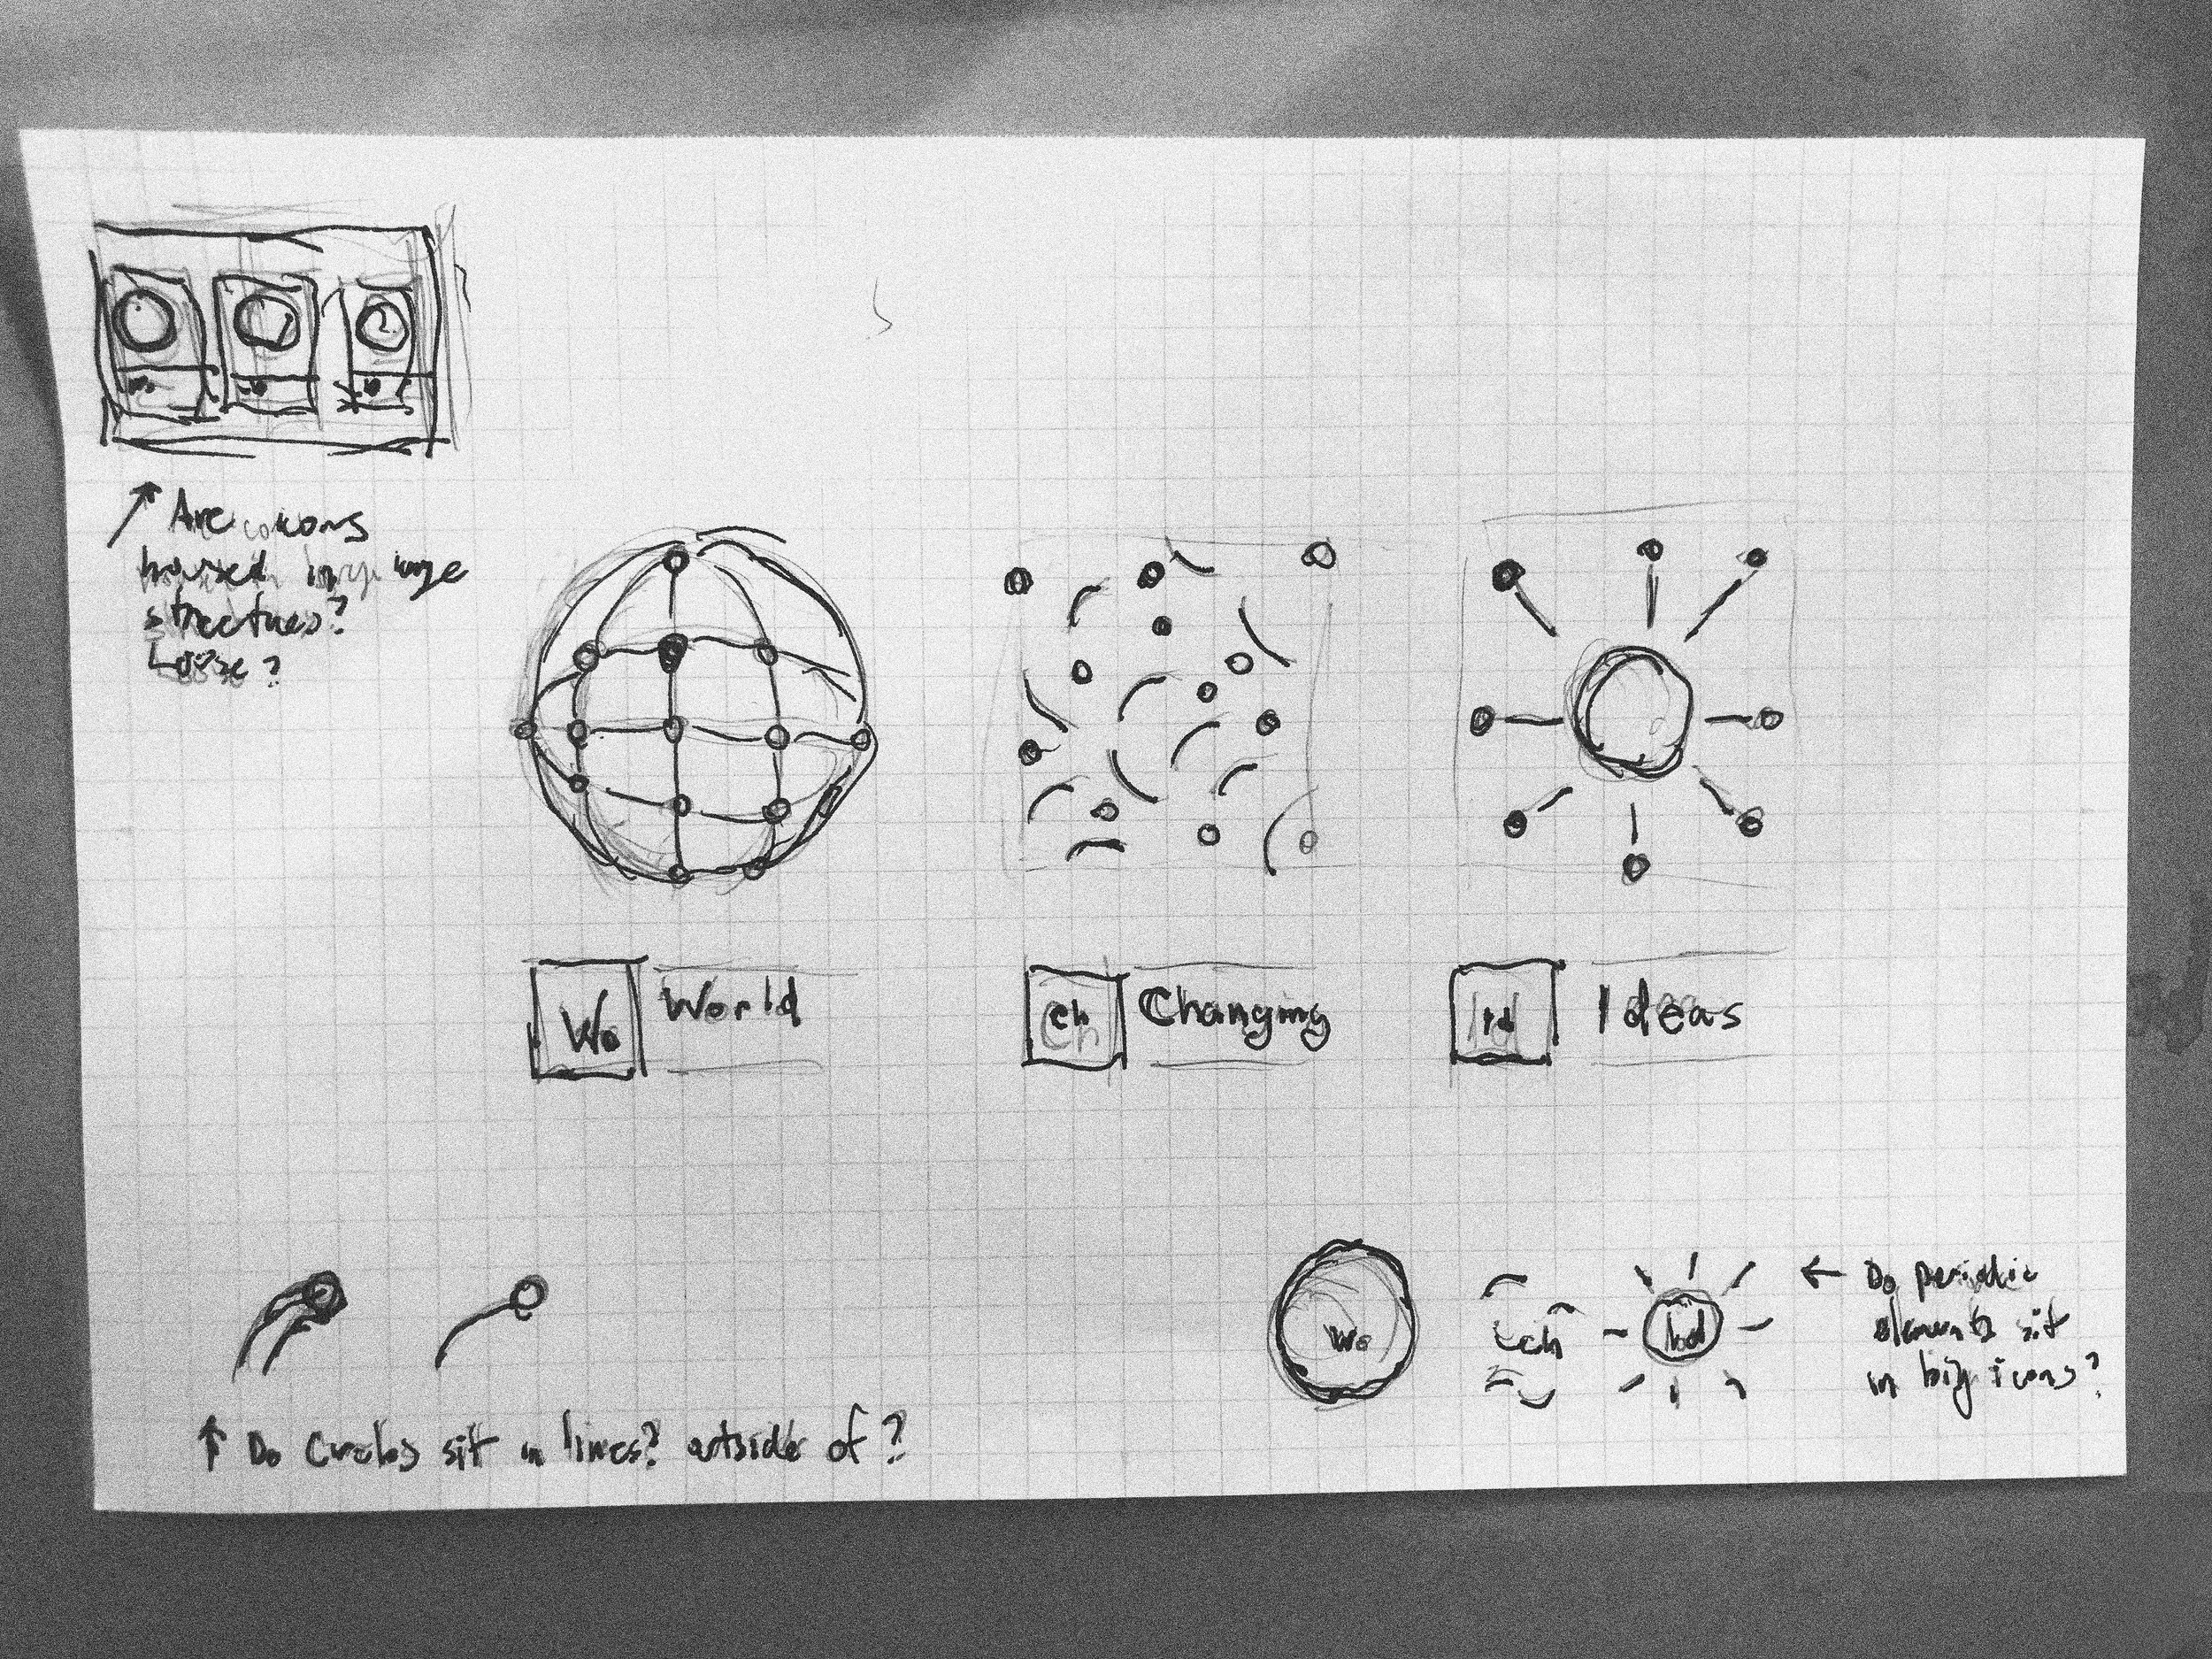 Are icons
housed in large
structures?
Loose?
Wo World
Ch Changing
Id Ideas
Wo
Ch
Id
Do periodic
elements sit
in big icons?
Do Circles sit in lines? outside of?